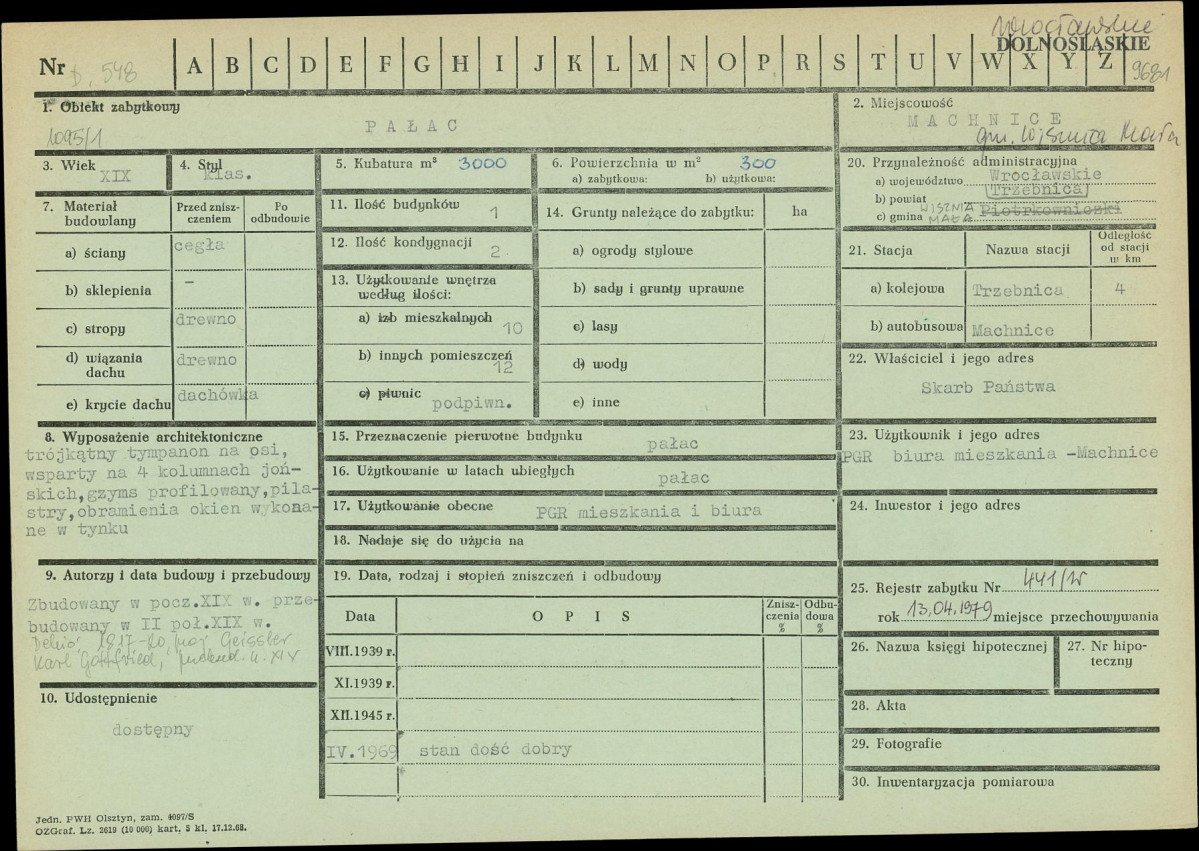 Wrocławskie
DOLNOŚLĄSKIE
9681
Nr D. 548 A B C D E F G H I J K L M N O P R S T U V W X Y Z
1. Obiekt zabytkowy
1095/1
PAŁAC
2. Miejscowość
MACHNICE
gm. Wisznia Mała
3. Wiek
XIX
4. Styl
klas.
5. Kubatura m³ 3000
6. Powierzchnia w m² 300
a) zabytkowa: b) użytkowa:
20. Przynależność administracyjna
a) województwo Wrocławskie
b) powiat Trzebnica
c) gmina WISZNIA MAŁA Piotrkowniczki
7. Materiał budowlany
Przed zniszczeniem
Po odbudowie
a) ściany cegła
b) sklepienia –
c) stropy drewno
d) wiązania dachu drewno
e) krycie dachu dachówka
11. Ilość budynków 1
12. Ilość kondygnacji 2
13. Użytkowanie wnętrza według ilości:
a) izb mieszkalnych 10
b) innych pomieszczeń 12
c) piwnic podpiwn.
14. Grunty należące do zabytku: ha
a) ogrody stylowe
b) sady i grunty uprawne
c) lasy
d) wody
e) inne
21. Stacja
Nazwa stacji
Odległość od stacji w km
a) kolejowa Trzebnica 4
b) autobusowa Machnice
22. Właściciel i jego adres
Skarb Państwa
8. Wyposażenie architektoniczne
trójkątny tympanon na osi,
wsparty na 4 kolumnach joń-
skich, gzyms profilowany, pila-
stry, obramienia okien wykona-
ne w tynku
15. Przeznaczenie pierwotne budynku
pałac
16. Użytkowanie w latach ubiegłych
pałac
17. Użytkowanie obecne PGR mieszkania i biura
18. Nadaje się do użycia na
23. Użytkownik i jego adres
PGR biura mieszkania -Machnice
24. Inwestor i jego adres
9. Autorzy i data budowy i przebudowy
Zbudowany w pocz.XIX w. prze-
budowany w II poł.XIX w.
Dehio: 1817-20 Geissler
Karl Gottfried, k. XIX
10. Udostępnienie
dostępny
19. Data, rodzaj i stopień zniszczeń i odbudowy
Data
OPIS
Zniszczenia %
Odbudowa %
VIII.1939 r.
XI.1939 r.
XII.1945 r.
IV.1969 stan dość dobry
25. Rejestr zabytku Nr 441/W
rok 13.04.1979 miejsce przechowywania
26. Nazwa księgi hipotecznej
27. Nr hipoteczny
28. Akta
29. Fotografie
30. Inwentaryzacja pomiarowa
Jedn. PWH Olsztyn, zam. 4097/S
OZGraf. Lz. 2619 (10 000) kart. 5 kl. 17.12.68.